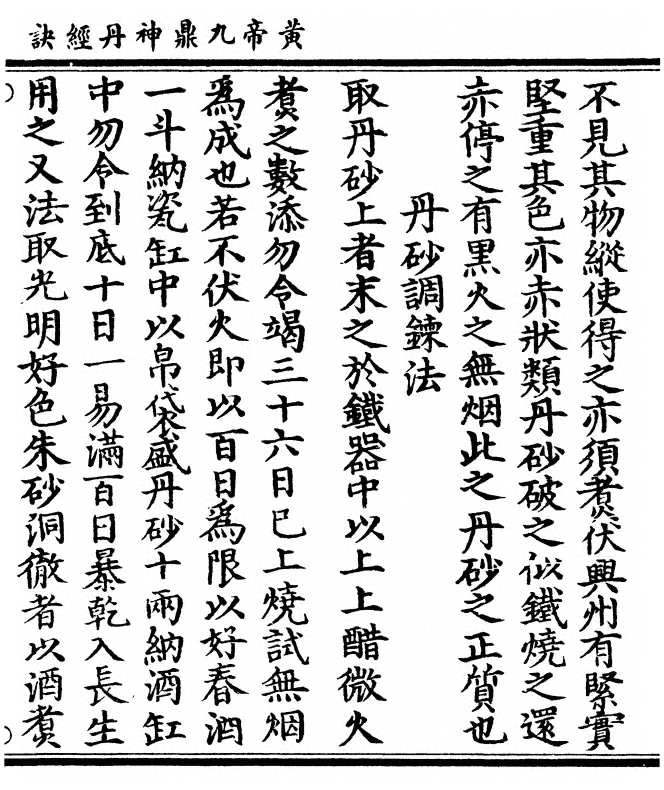 黃帝九鼎神丹經訣
不見其物縱使得之亦須煑伏興州有緊實
堅重其色亦赤狀類丹砂破之似鐵燒之還
赤停之有黑火之無烟此之丹砂之正質也
丹砂調鍊法
取丹砂上者末之於鐵器中以上上醋微火
煑之數添勿令竭三十六日已上燒試無烟
爲成也若不伏火即以百日爲限以好春酒
一斗納瓷缸中以帛袋盛丹砂十兩納酒缸
中勿令到底十日一易滿百日暴乾入長生
用之又法取光明好色朱砂洞徹者以酒煑